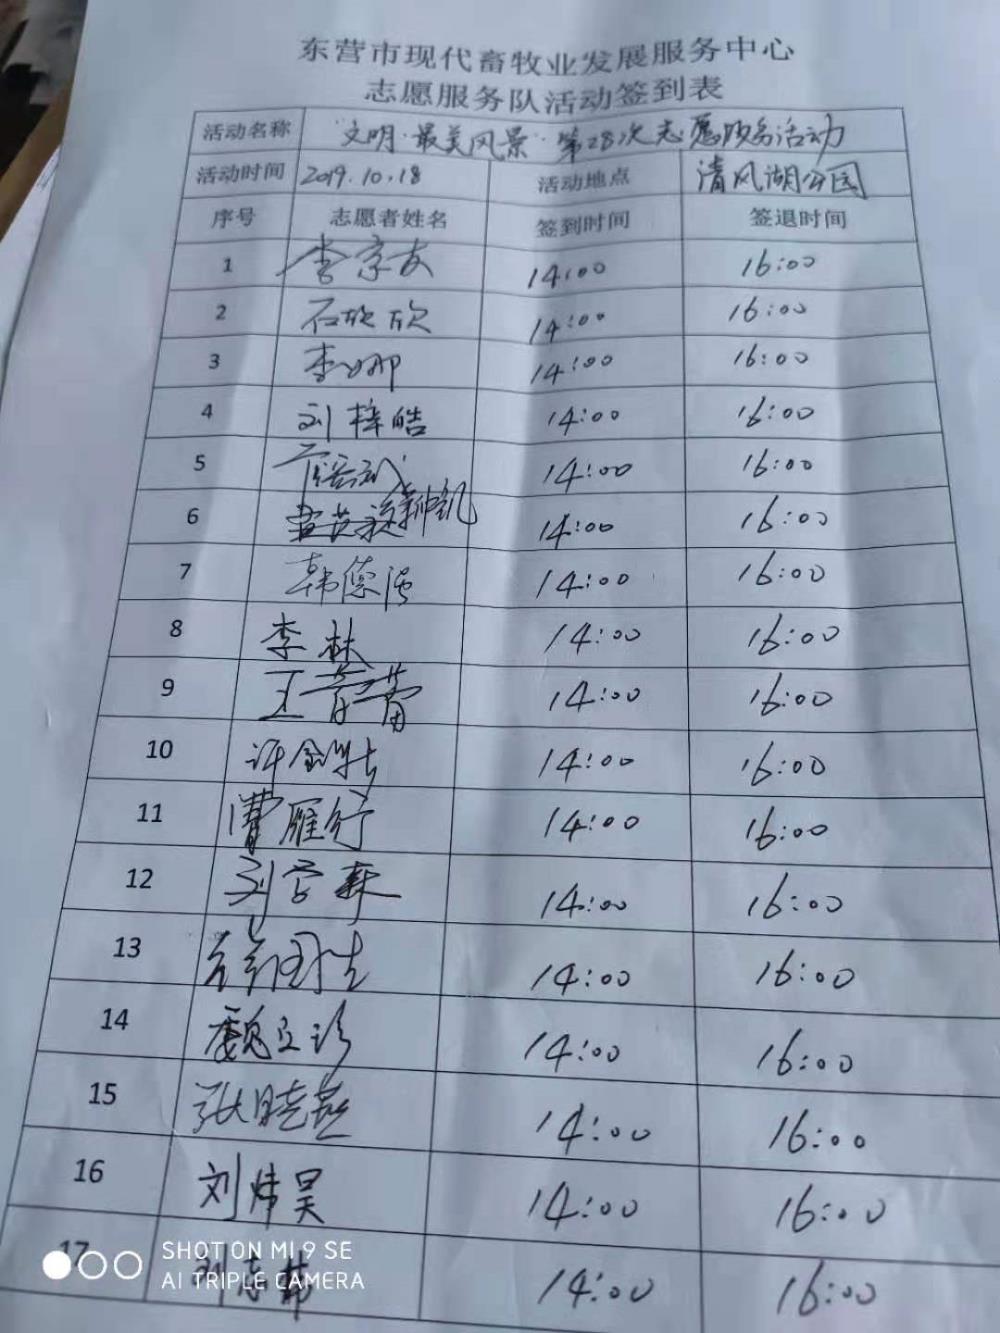 东营市现代畜牧业发展服务中心
志愿服务队活动签到表
活动名称 "文明·最美风景"第28次志愿服务活动
活动时间 2019.10.18 活动地点 清风湖公园
序号 志愿者姓名 签到时间 签退时间
1 李京友 14:00 16:00
2 石欣欣 14:00 16:00
3 李娜 14:00 16:00
4 刘梓皓 14:00 16:00
5 14:00 16:00
6 14:00 16:00
7 韩德强 14:00 16:00
8 李林 14:00 16:00
9 王蕾蕾 14:00 16:00
10 14:00 16:00
11 曹雁行 14:00 16:00
12 刘学森 14:00 16:00
13 14:00 16:00
14 魏立珍 14:00 16:00
15 张晓燕 14:00 16:00
16 刘炜昊 14:00 16:00
17 14:00 16:00
SHOT ON MI 9 SE
AI TRIPLE CAMERA